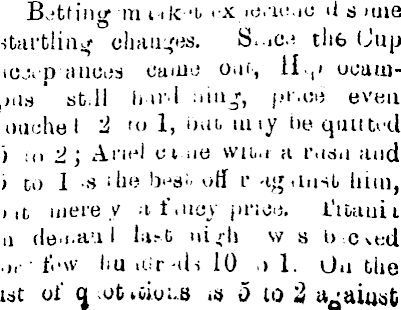 Betting market experienced some
startling changes. Since the Cup
acceptances came out, Hippocam-
pus still hardening, price even
touched 2 to 1, but may be quoted
5 to 2; Ariel came with a rush and
5 to 1 is the best offer against him,
but merely a fancy price. Titania
in demand last night was backed
for few hundreds 10 to 1. On the
list of quotations is 5 to 2 against